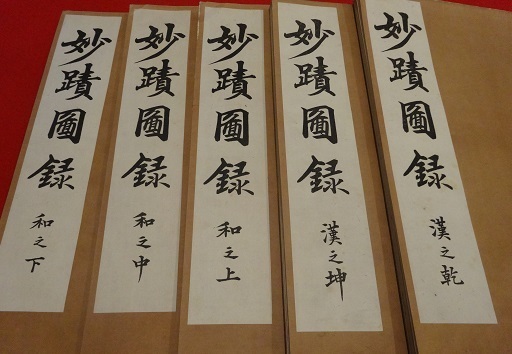 妙蹟圖録 漢之乾
妙蹟圖録 漢之坤
妙蹟圖録 和之上
妙蹟圖録 和之中
妙蹟圖録 和之下